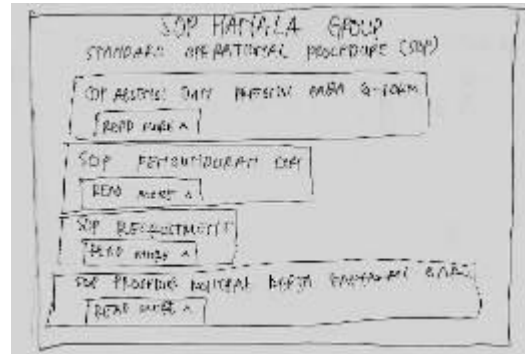 SOP HAMALA GROUP
STANDARD OPERATIONAL PROCEDURE (SOP)
SOP ABSENSI DAN PRESENSI PADA G-FORM
READ MORE ^
SOP PENGUNDURAN DIRI
READ MORE ^
SOP RECRUITMENT
READ MORE ^
SOP PROSEDUR KONTRAK KERJA KARYAWAN BARU
READ MORE ^